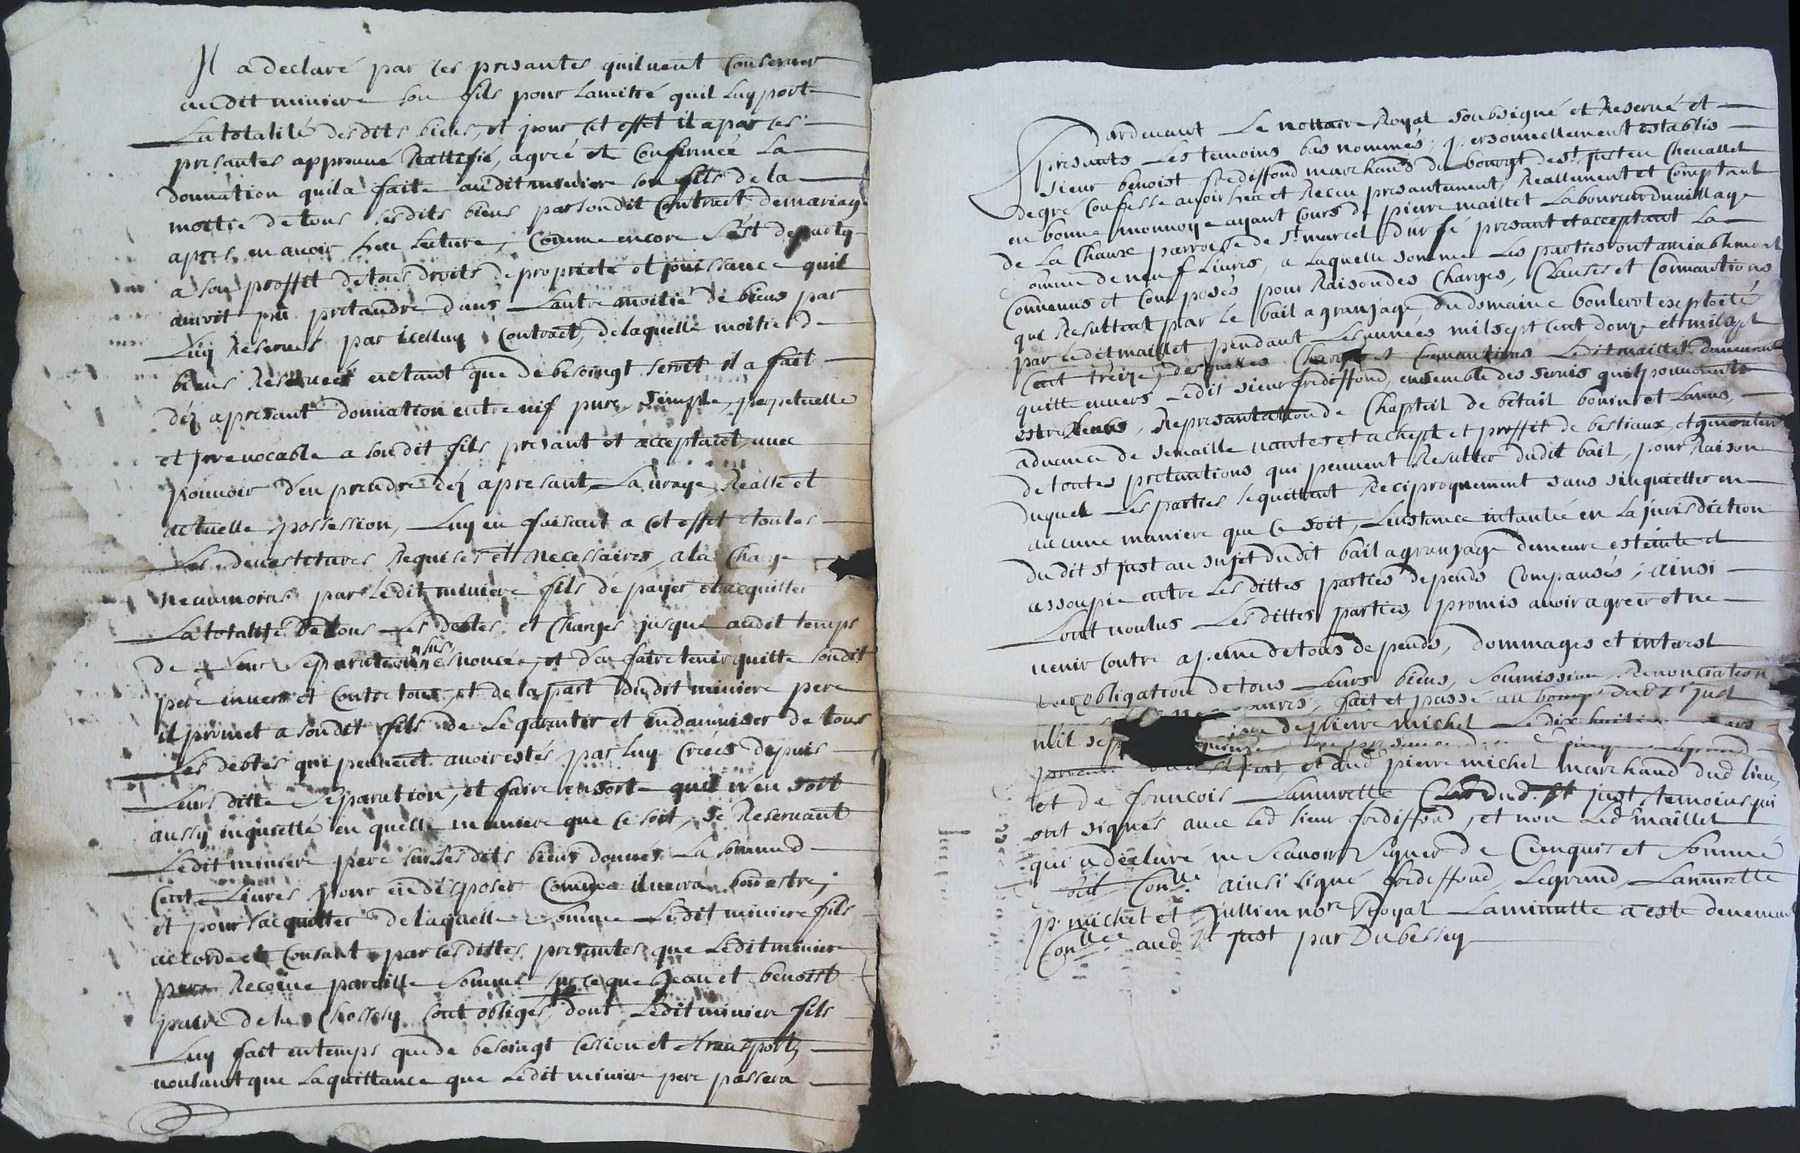 Il a declaré par ces presantes quil veut conserver
audit miniere son fils pour lamitié quil luy porte
La totalité desdits biens, et pour cet effet il a par ces
presantes approuvé Rattefié, agréé et Confirmée La
donnation quil a faite audit miniere son fils de la
moitié de tous sesdits biens par sondit Contract de mariage
apres en avoir heu Lecture, Comme encore s'est departy
a son proffit de tous droits de propriété et jouissance quil
auroit pu pretandre dans Lautre moitié de biens par
Luy Reservés par icelluy Contract, de laquelle moitié de
biens Reservés entant que de besoingt seroit il a fait
déz apresant donnation entre vif pure, simple, perpetuelle
et jrrevocable a sondit fils presant et acceptant, avec
pouvoir d'en prendre déz apresant La vraye Realle et
actuelle possession, Luy en faisant a cet effet toutes
Les devestetures Requises et necessaires, a la Charge
neaumoins par ledit miniere fils de payer et acquitter
La totalité de tous Les debtes et Charges jusque audit temps
de Leur separation sus enoncée, et d'en faire tenir quitte sondit
pere envers et Contre tous, et de la part dudit miniere pere
il promet a sondit fils de Le garantir et indamniser de tous
Les debtes qui peuvent avoir estés par luy Créés depuis
Leurs ditte separation, et faire ensorte quil n'en soit
aussy inquietté en quelle maniere que ce soit, se Reservant
Ledit miniere pere sur lesdits biens donnés La somme de
Cent Livres pour en disposer Comme il verra bon estre;
et pour sacquitter de laquelle somme Ledit miniere fils
accorde et Consant par lesdittes presantes que Ledit miniere
pere Recoive pareille somme sur ce que Jean et benoist
patre de la Chossy sont obligés, dont Ledit miniere fils
Luy fait entemps que de besoingt cession et transport,
voulant que la quittance que Ledit miniere pere passera
Pardevant Le nottaire Royal soubsigné et Reservé et
presents Les temoins bas nommés, personnellement establis
sieur benoist frediffond marchand du bourgt de st just en Chevallet
de gré Confesse avoir heu et Receu presantement, Reallement et Comptant
en bonne monnoye ayant Cours de pierre maillet Laboureur du village
de La Chaux parroisse de st marcel durfé presant et acceptant La
somme de neuf Livres, a laquelle somme Les parties ont amiablement
Convenus et Composés pour Raison des Charges, Clauses et Convantions
que Resultent par Le bail a granjage du domaine bouleret exploité
par Ledit maillet pendant Les années mil sept cent douze et mil sept
Cent treize, desquelles Charges et Convantions Ledit maillet demeurant
quitte envers Ledit sieur frediffond, ensemble des servis quil pouvoient
estre deubs, Representation de Chapteil de bétail bovin et Lanus,
advance de semaille ventes et achept et proffit de bestiaux, et generalement
de toutes pretantions qui peuvent Resulter dudit bail, pour Raison
duquel Les parties se quittent Reciproquement sans s'inquietter en
aucune maniere que Ce soit, Linstance intantée en La jurisdiction
dudit st just au sujet dudit bail a granjage demeure esteinte et
assoupie entre Lesdittes parties depends Compansés; ainsi
L'ont voulus Lesdittes parties, promis avoir agréér et ne
venir Contre a peine de tous depends, dommages et interest
obligation de tous Leurs biens, soumissions, Renonciation
fait et passé au bourgt dud st just
mil sept de pierre michel Le dix huitieme
et dud pierre michel marchand dud lieu,
et de francois Lamurette Clerc dud. st just, temoins qui
ont signés avec led sieur frediffond, et non Led maillet
qui a declaré ne scavoir signer de Ce enquis et sommé
ainsi signé frediffond, Legrand, Lamurette
p. michel et Jullien nore Royal La minutte a esté deuement
Conllée aud st just par Dubessey